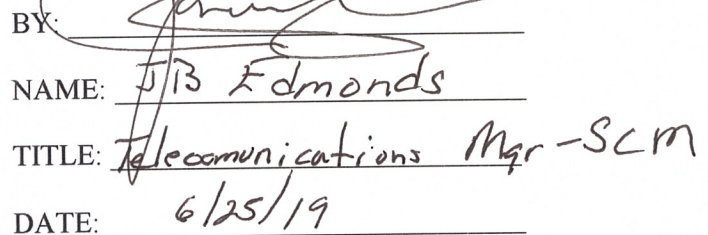 BY:
NAME: JB Edmonds
TITLE: Telecomunications Mgr-SCM
DATE: 6/25/19